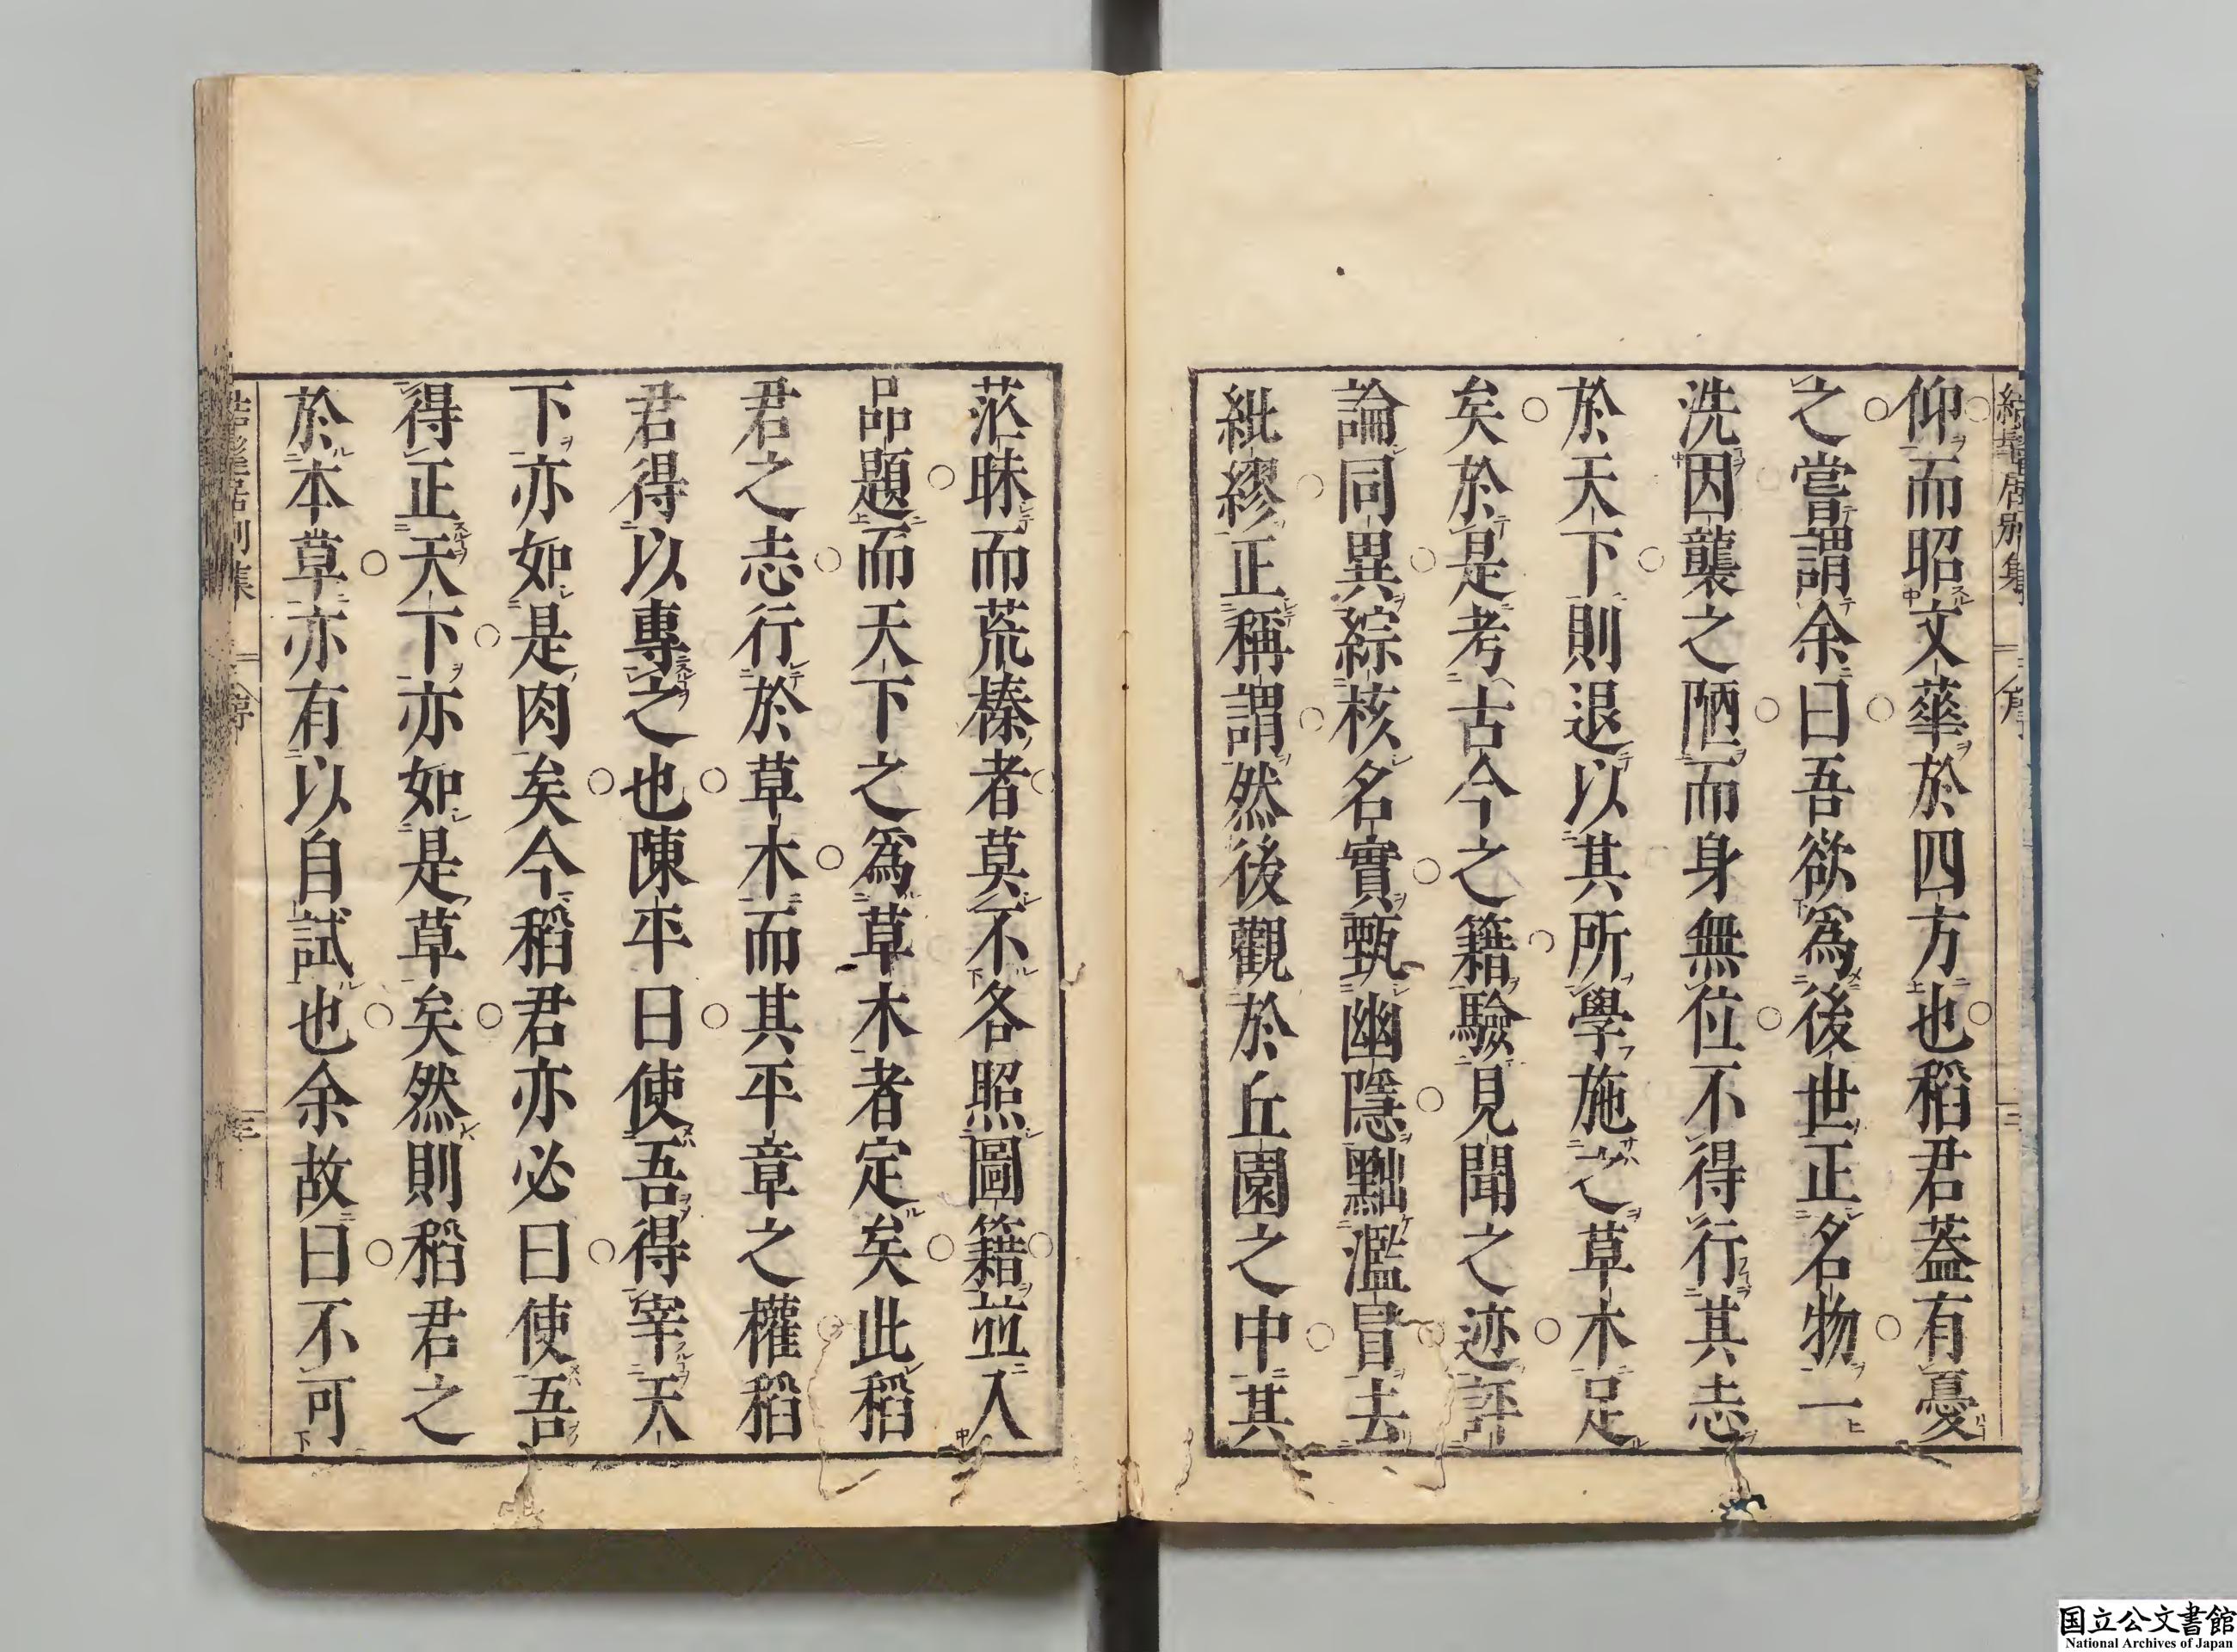 仰而昭文華於四方也稻君蓋有憂
之嘗謂余曰吾欲爲後世正名物一
洗因襲之陋而身無位不得行其志
於天下則退以其所學施之草木足
矣於是考古今之籍驗見聞之迹評
論同異綜核名實甄幽隱黜濫冒去
紕繆正稱謂然後觀於丘園之中其
茫昧而荒榛者莫不各照圖籍並入
品題而天下之爲草木者定矣此稻
君之志行於草木而其平章之權稻
君得以專之也陳平曰使吾得宰天
下亦如是肉矣今稻君亦必曰使吾
得正天下亦如是草矣然則稻君之
於本草亦有以自試也余故曰不可
国立公文書館
National Archives of Japan